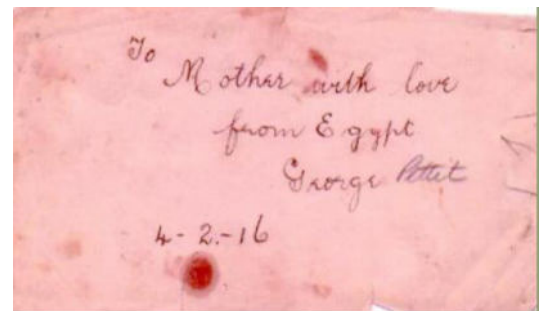 To
Mother with love
from Egypt
George Pettit
4-2.-16